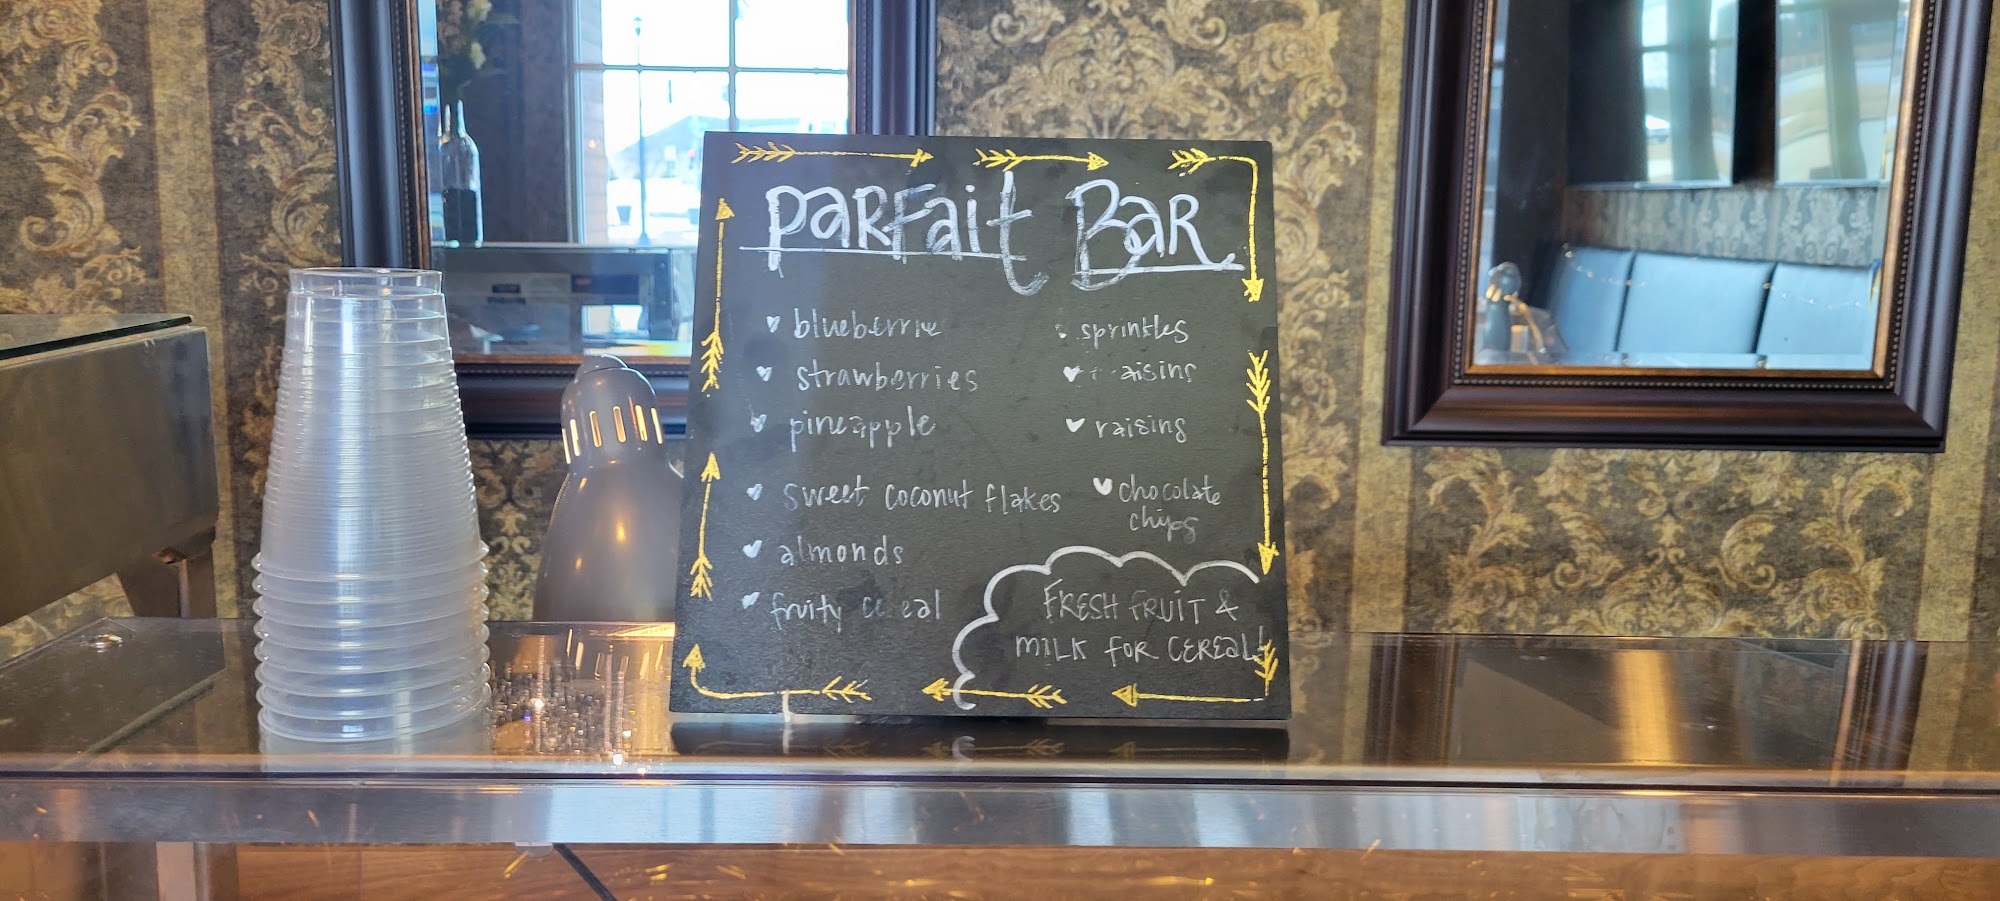 Parfait Bar
blueberrie
strawberries
pineapple
sweet coconut flakes
almonds
fruity ce eal
sprinkles
raisins
raisins
chocolate
chips
FRESH FRUIT &
MILK FOR CEREAL!